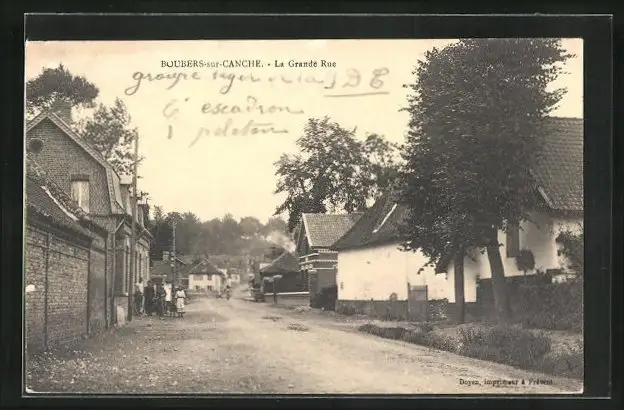 BOUBERS-sur-CANCHE. - La Grande Rue
groupe léger de la 5 DC
6e escadron
1 peloton
Doyen, imprimeur à Frévent